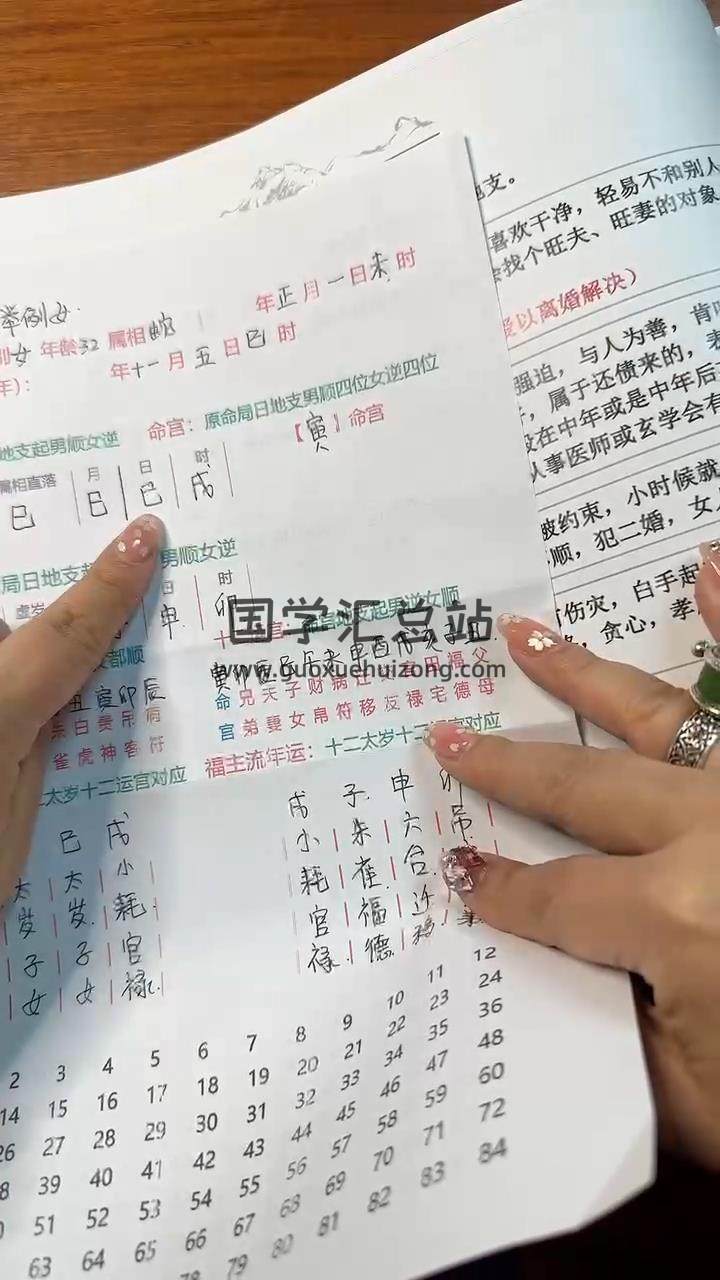 举例女.
别女 年龄32 属相蛇
年正月一日未时
年): 年十一月五日巳时
地支起男顺女逆 命宫：原命局日地支男顺四位女逆四位
属相直落 月 日 时 【寅】命宫
巳 巳 巳 戌
局日地支起 男顺女逆
虚岁 日 时
申 卯
十二宫：命宫起男逆女顺
国学汇总站
www.guoxuehuizong.com
都顺
丑寅卯辰
朱白贵吊病 命兄天子财病迁友田福父
雀虎神客符 官弟妻女帛符移友禄宅德母
太岁十二运宫对应 福主流年运：十二太岁十二运宫对应
巳 戌 戌 子 申 卯
太 太 小 小 朱 六 吊
岁 岁 耗 耗 雀 合
子 子 官 官 福 迁
女 女 禄 禄 德 移
2 3 4 5 6 7 8 9 10 11 12
14 15 16 17 18 19 20 21 22 23 24
26 27 28 29 30 31 32 33 34 35 36
39 40 41 42 43 44 45 46 47 48
51 52 53 54 55 56 57 58 59 60
63 64 65 66 67 68 69 70 71 72
78 79 80 81 82 83 84
支。
喜欢干净，轻易不和别人
找个旺夫、旺妻的对象
以离婚解决）
强迫，与人为善，肯
，属于还债来的，表
在中年或是中年后
人事医师或玄学会有
被约束，小时候就
顺，犯二婚，女人
有伤灾，白手起
，贪心，孝